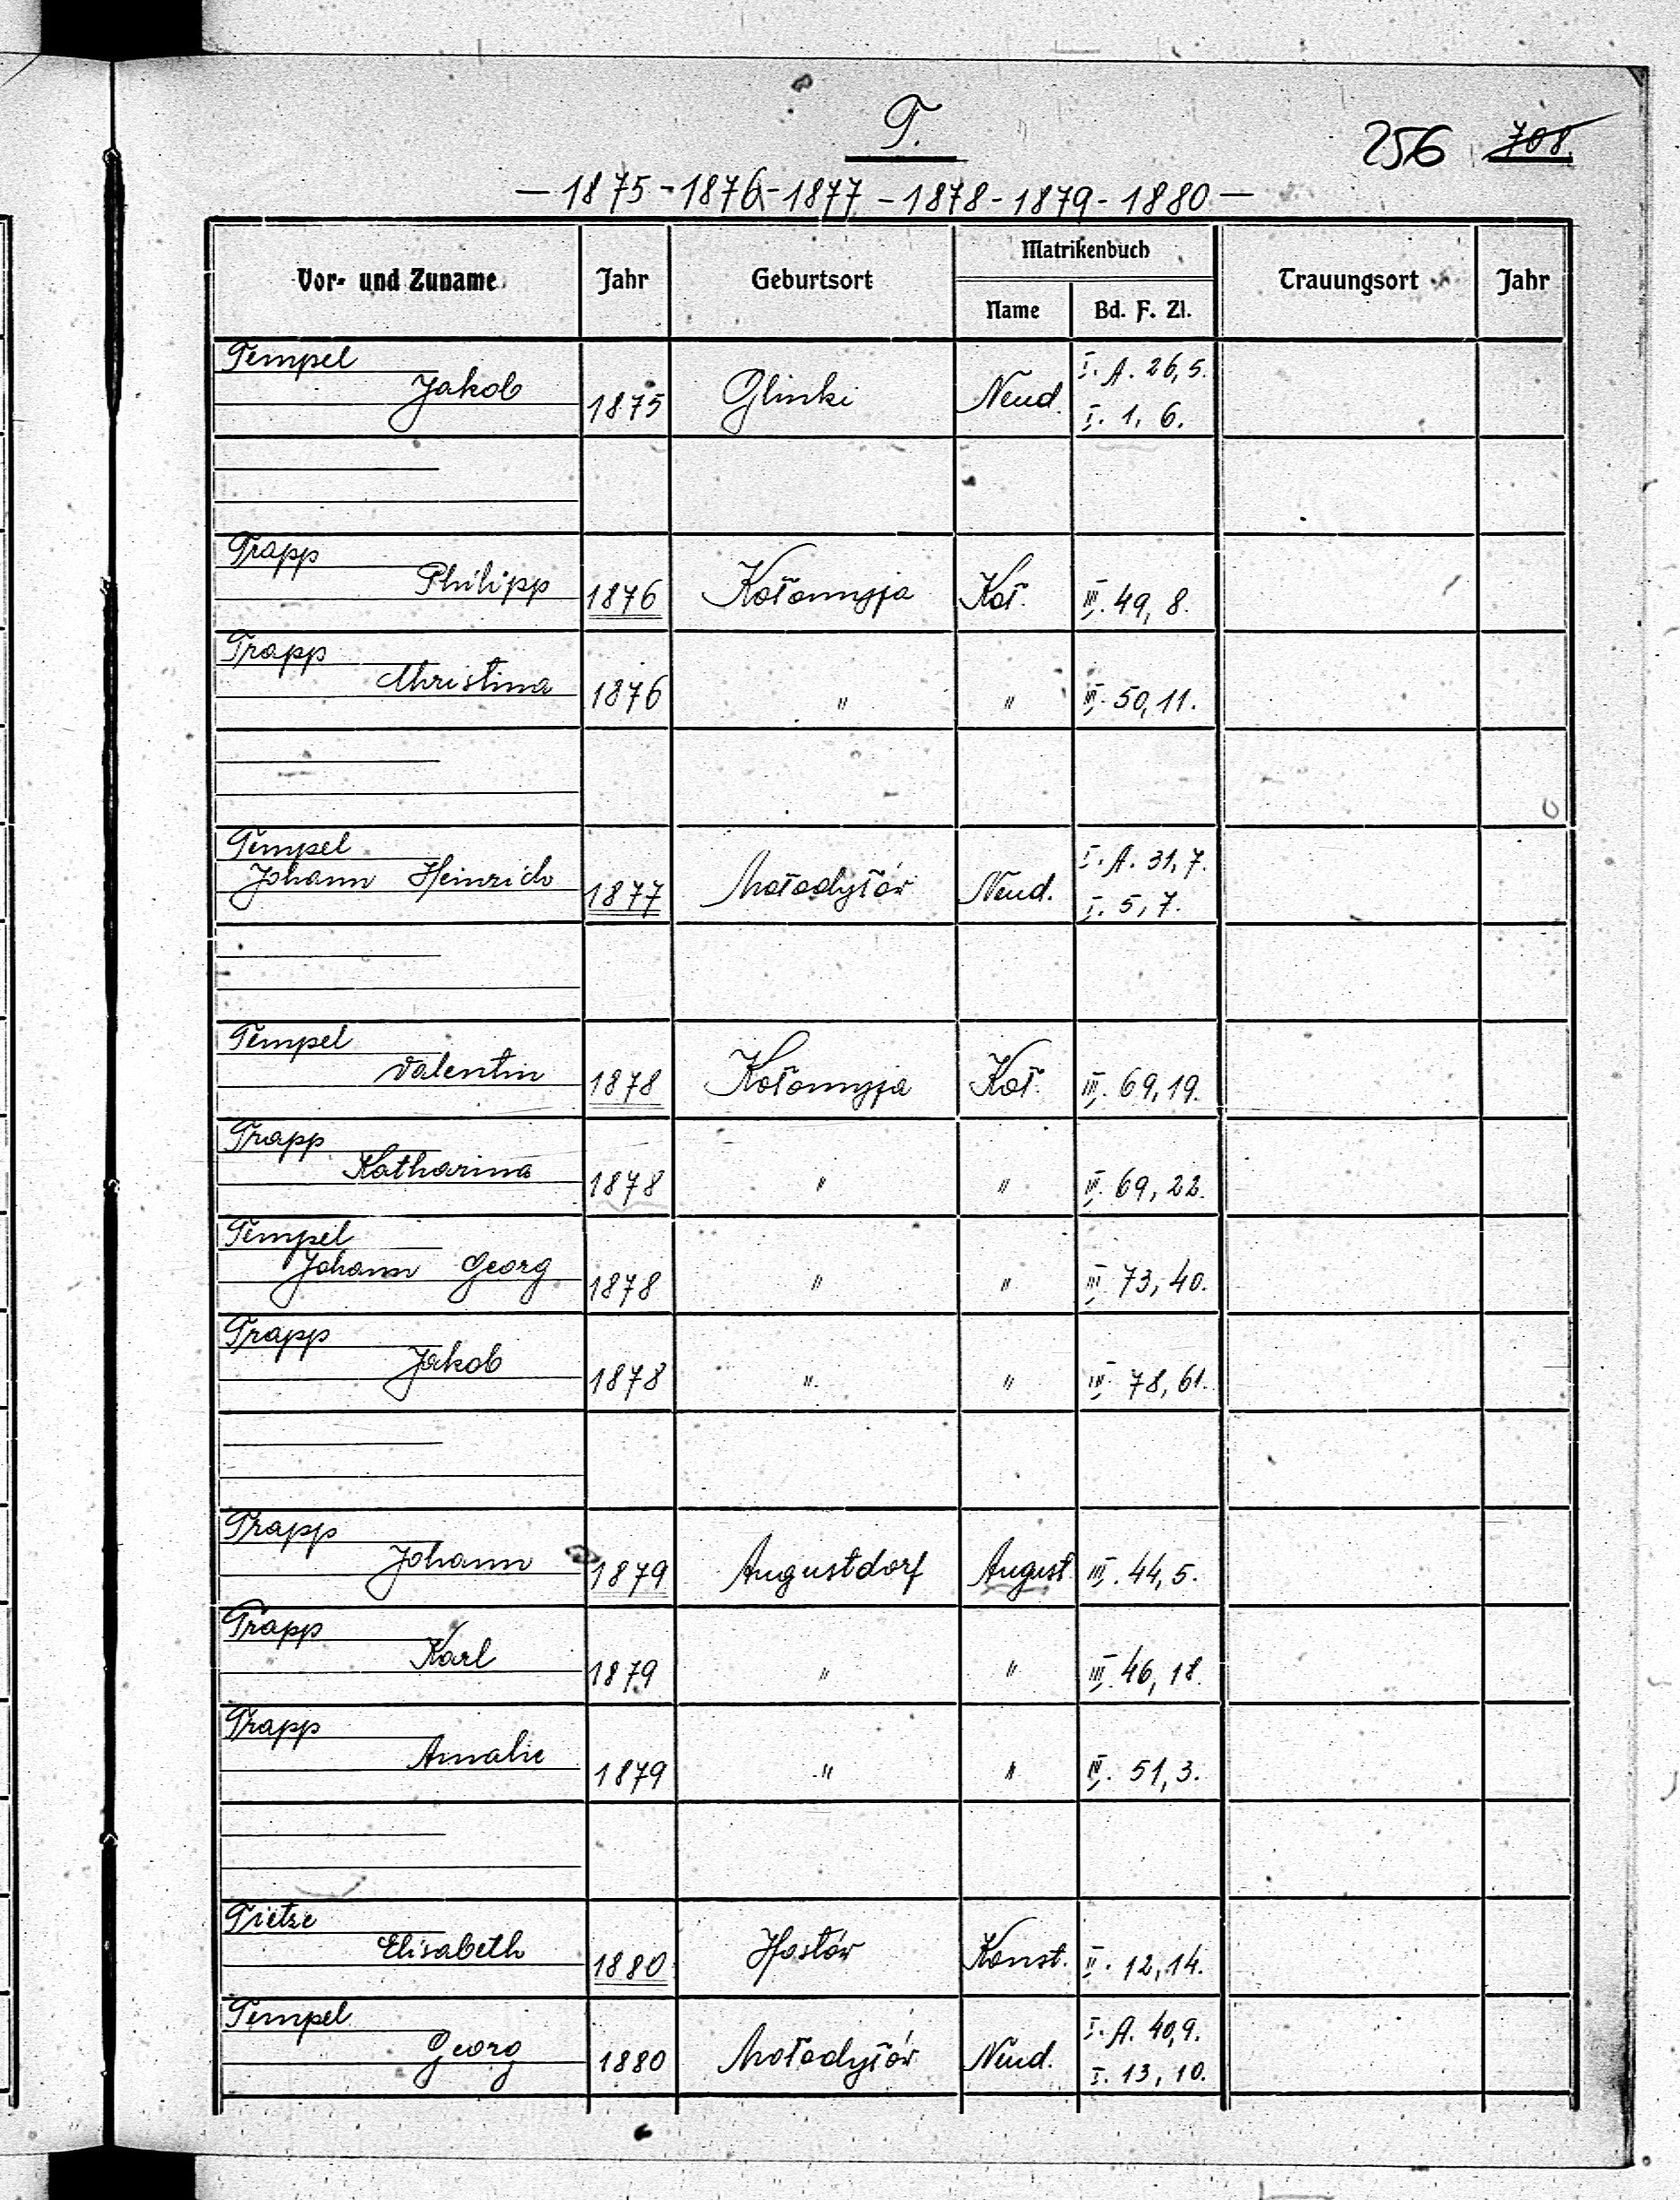 T.
256 708.
— 1875 - 1876 - 1877 - 1878 - 1879 - 1880 —
Vor- und Zuname Jahr Geburtsort Matrikenbuch Trauungsort Jahr
Name Bd. F. Zl.
Tempel I. A. 26, 5.
Jakob 1875 Glinki Neud. I. 1, 6.
Trapp
Philipp 1876 Kołomyja Koł. III. 49, 8.
Trapp
Christina 1876 " " III. 50, 11.
Tempel I. A. 31, 7.
Johann Heinrich 1877 Mołodyłów Neud. I. 5, 7.
Tempel
Valentin 1878 Kołomyja Koł. III. 69, 19.
Trapp
Katharina 1878 " " III. 69, 22.
Tempel
Johann Georg 1878 " " III 73, 40.
Trapp
Jakob 1878 " " III. 78, 61.
Trapp
Johann 1879 Augustdorf August. III. 44, 5.
Trapp
Karl 1879 " " III. 46, 18.
Trapp
Amalie 1879 " " III. 51, 3.
Tietze
Elisabeth 1880 Hostów Konst. II. 12, 14.
Tempel I. A. 40, 9.
Georg 1880 Mołodyłów Neud. I. 13, 10.